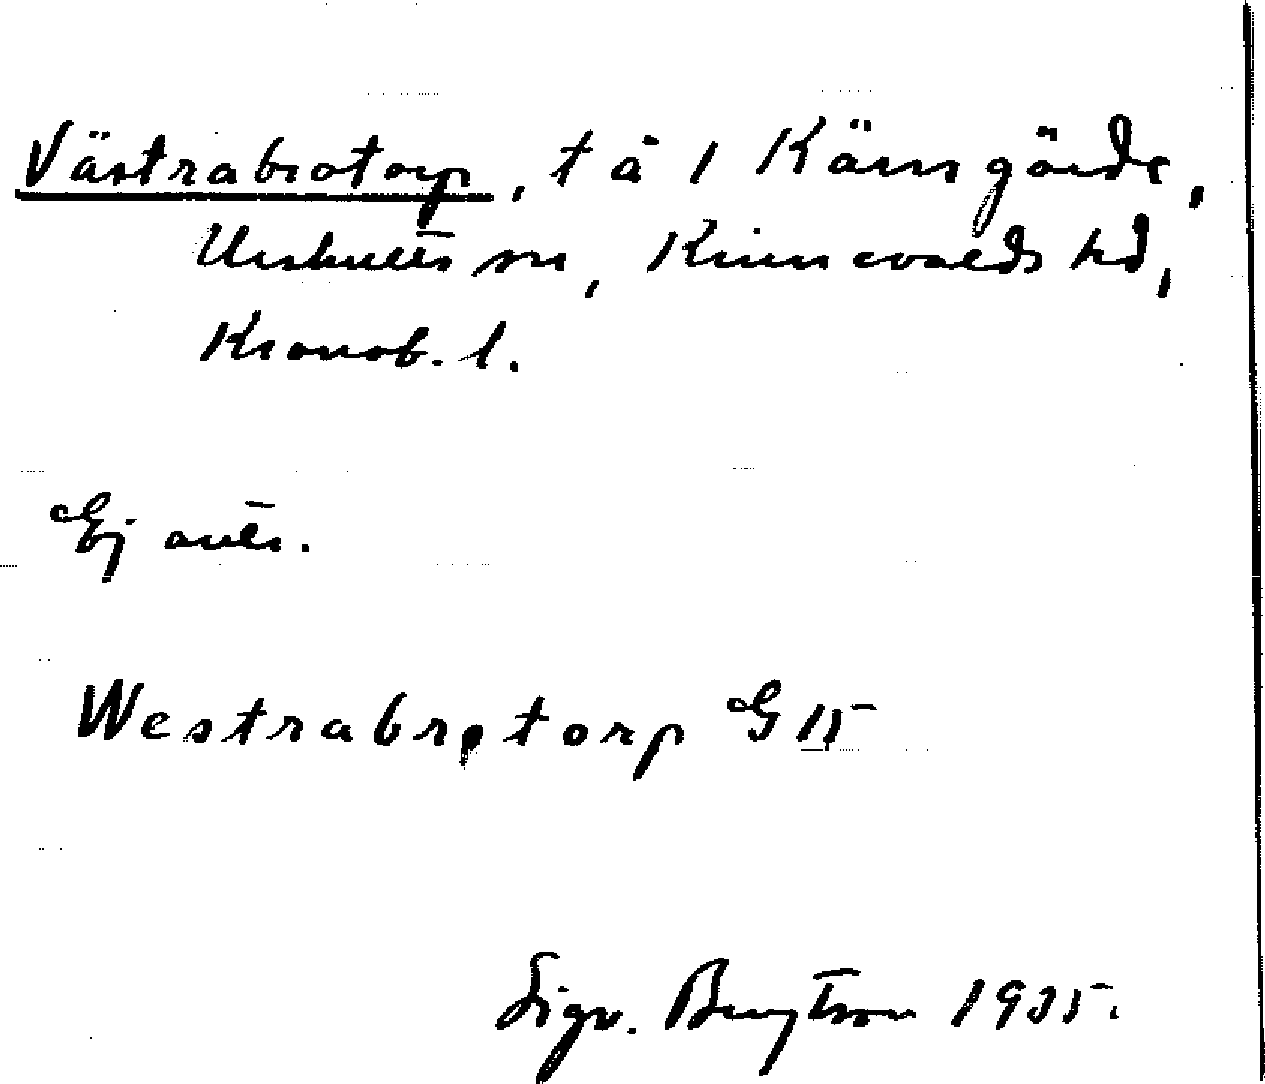 Västrabrotorp, t å 1 Kärrsgärde,
Urshults sn, Kinnevalds hd,
Kronob. l.
Ej antr.
Westrabrotorp G 15
Sigv. Bengtson 1935.